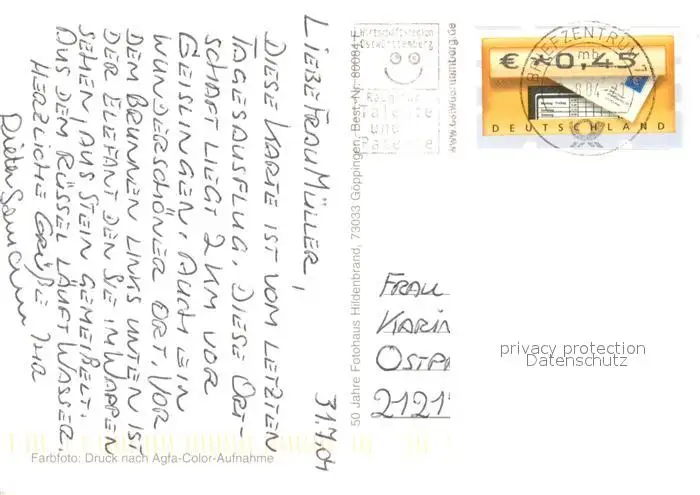 31.7.01
LIEBE FRAU MÜLLER,
DIESE KARTE IST VOM LETZTEN
TAGESAUSFLUG. DIESE ORT-
SCHAFT LIEGT 2 KM VOR
GEISLINGEN. AUCH EIN
WUNDERSCHÖNER ORT. VOR
DEM BRUNNEN LINKS UNTEN IST
DER ELEFANT DEN SIE IM WAPPEN
SEHEN, AUS STEIN GEMEIßELT.
AUS DEM RÜSSEL LÄUFT WASSER.
HERZLICHE GRÜßE IHR
Dieter
Farbfoto: Druck nach Agfa-Color-Aufnahme
50 Jahre Fotohaus Hildenbrand, 73033 Göppingen, Best.-Nr. 80084-E
Wirtschaftsregion
Ostwürttemberg
Raum für
Talente
und
Patente
BRIEFZENTRUM 73
mb
€ *0,45
DEUTSCHLAND
FRAU
KARIN
OSTPR
2121
privacy protection
Datenschutz